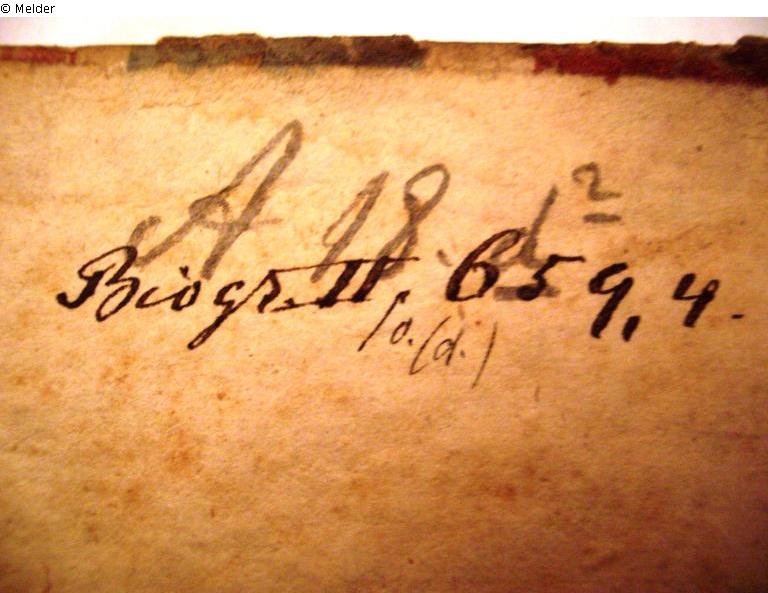 © Melder
A 18. d²
Biogr. II, 659, 4.
(d.)